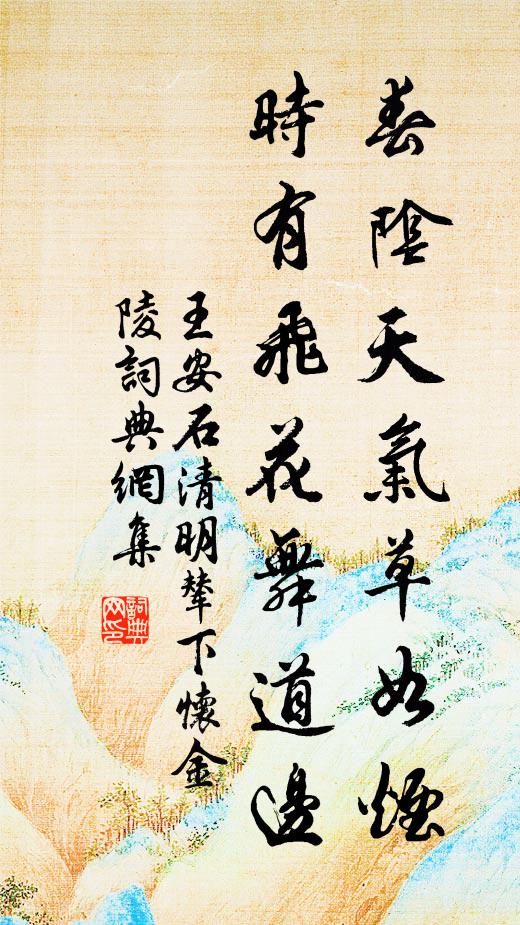 春陰天氣草如煙
時有飛花舞道邊
王安石清明輦下懷金
陵詞典網集
詞典網印